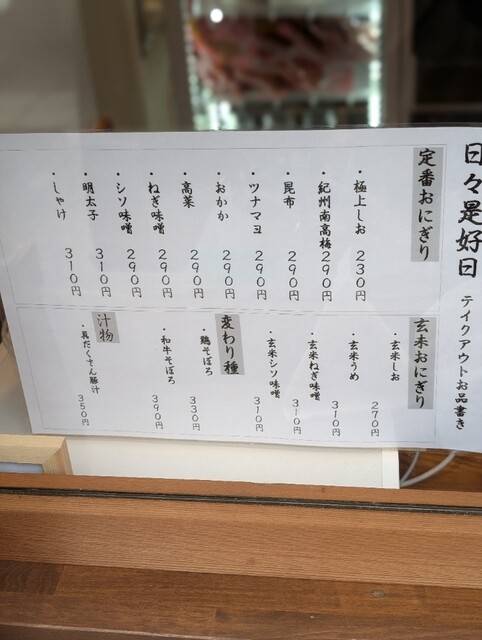 日々是好日 テイクアウトお品書き
定番おにぎり
・極上しお 230円
・紀州南高梅 290円
・昆布 290円
・ツナマヨ 290円
・おかか 290円
・高菜 290円
・ねぎ味噌 290円
・シソ味噌 290円
・明太子 310円
・しゃけ 310円
玄米おにぎり
・玄米しお 270円
・玄米うめ 310円
・玄米ねぎ味噌 310円
・玄米シソ味噌 310円
変わり種
・鶏そぼろ 330円
・和牛そぼろ 390円
汁物
・具だくさん豚汁 350円